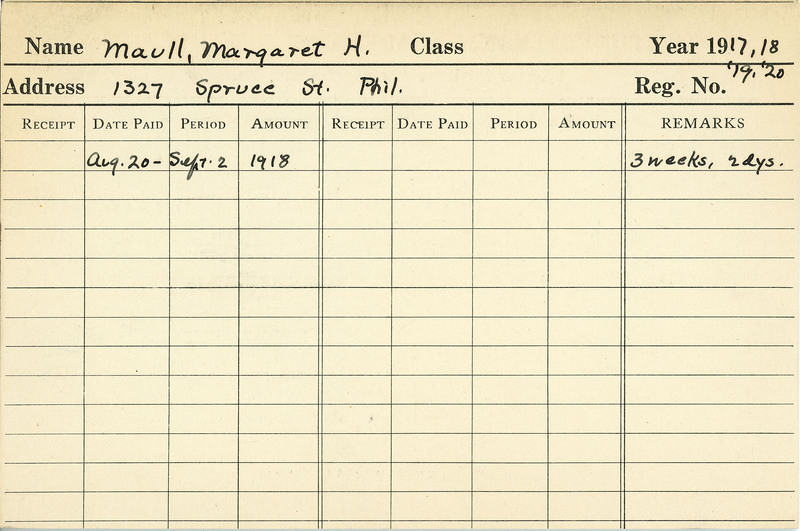 Name Maull, Margaret H. Class Year 1917, 18
'19, '20
Address 1327 Spruce St. Phil. Reg. No.
RECEIPT DATE PAID PERIOD AMOUNT RECEIPT DATE PAID PERIOD AMOUNT REMARKS
Aug. 20 - Sept. 2 1918 3 weeks, 2 dys.